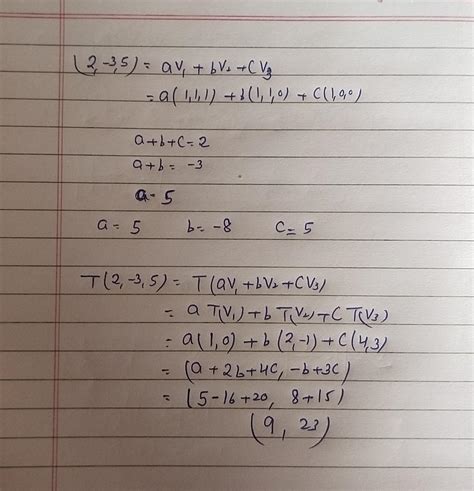 (2,-3,5) = aV₁ + bV₂ + CV₃
= a(1,1,1) + b(1,1,0) + C(1,0,0)
a+b+c=2
a+b= -3
a= 5
a= 5 b= -8 C= 5
T(2,-3,5) = T(aV₁ + bV₂ + CV₃)
= a T(V₁) + b T(V₂) + C T(V₃)
= a(1,0) + b(2,-1) + C(4,3)
= (a + 2b + 4C, -b + 3C)
= (5-16+20, 8+15)
(9, 23)